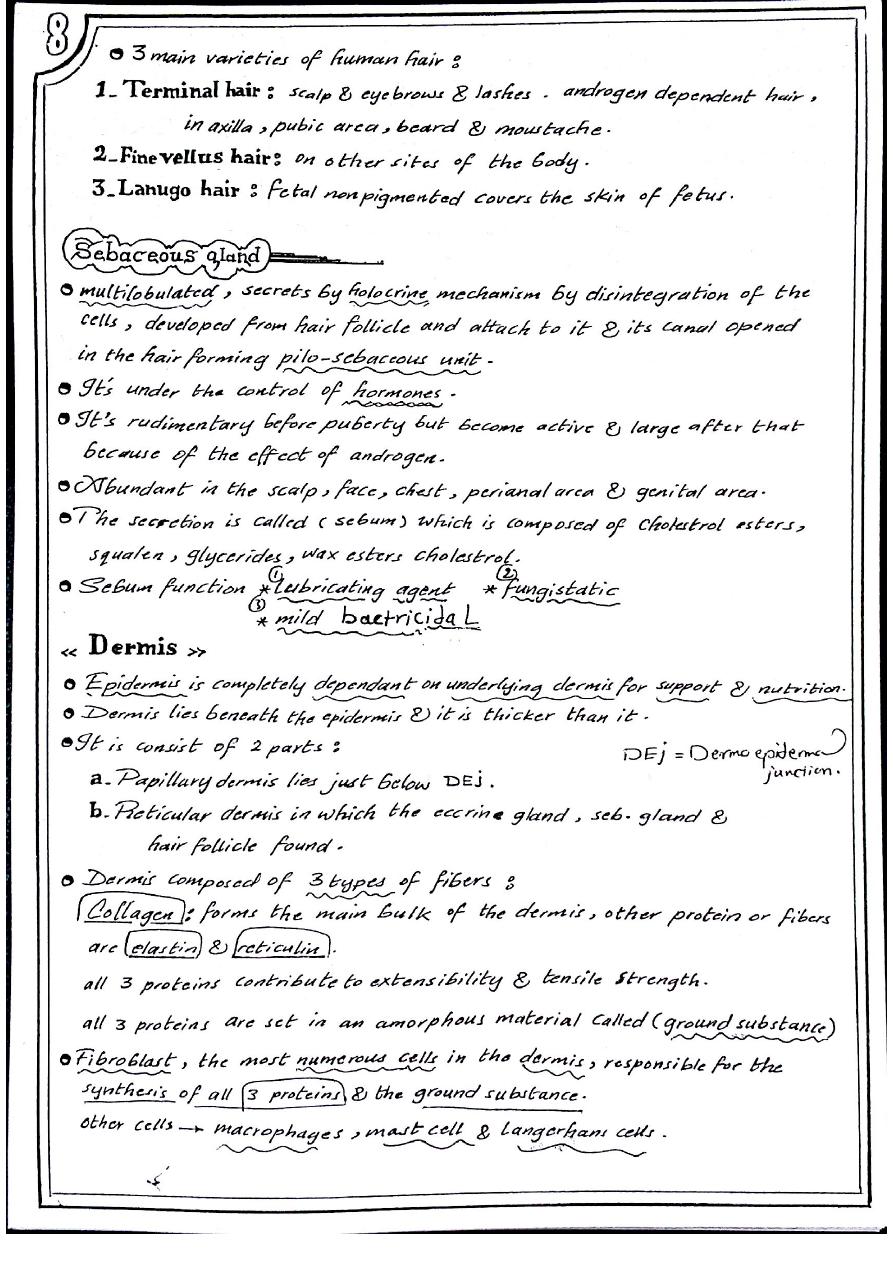 8
• 3 main varieties of human hair :
1_ Terminal hair : scalp & eyebrows & lashes . androgen dependent hair ,
in axilla , pubic area , beard & moustache .
2_Fine vellus hair : on other sites of the body .
3_Lanugo hair : fetal nonpigmented covers the skin of fetus .
Sebaceous gland
• multilobulated , secrets by holocrine mechanism by disintegration of the
cells , developed from hair follicle and attach to it & its canal opened
in the hair forming pilo-sebaceous unit .
• It's under the control of hormones .
• It's rudimentary before puberty but become active & large after that
because of the effect of androgen .
• Abundant in the scalp , face , chest , perianal area & genital area .
• The secretion is called ( sebum ) which is composed of Cholestrol esters ,
squalen , glycerides , wax esters cholestrol .
• Sebum function ① * lubricating agent ② * fungistatic
③ * mild bactricidal
<< Dermis >>
• Epidermis is completely dependant on underlying dermis for support & nutrition .
• Dermis lies beneath the epidermis & it is thicker than it .
• It is consist of 2 parts :
DEj = Dermo epidermal
junction .
a - Papillary dermis lies just below DEJ .
b - Reticular dermis in which the eccrine gland , seb . gland &
hair follicle found .
• Dermis composed of 3 types of fibers :
Collagen : forms the main bulk of the dermis , other protein or fibers
are elastin & reticulin .
all 3 proteins contribute to extensibility & tensile strength .
all 3 proteins are set in an amorphous material called ( ground substance )
• Fibroblast , the most numerous cells in the dermis , responsible for the
synthesis of all 3 proteins & the ground substance .
other cells → macrophages , mast cell & langerhans cells .